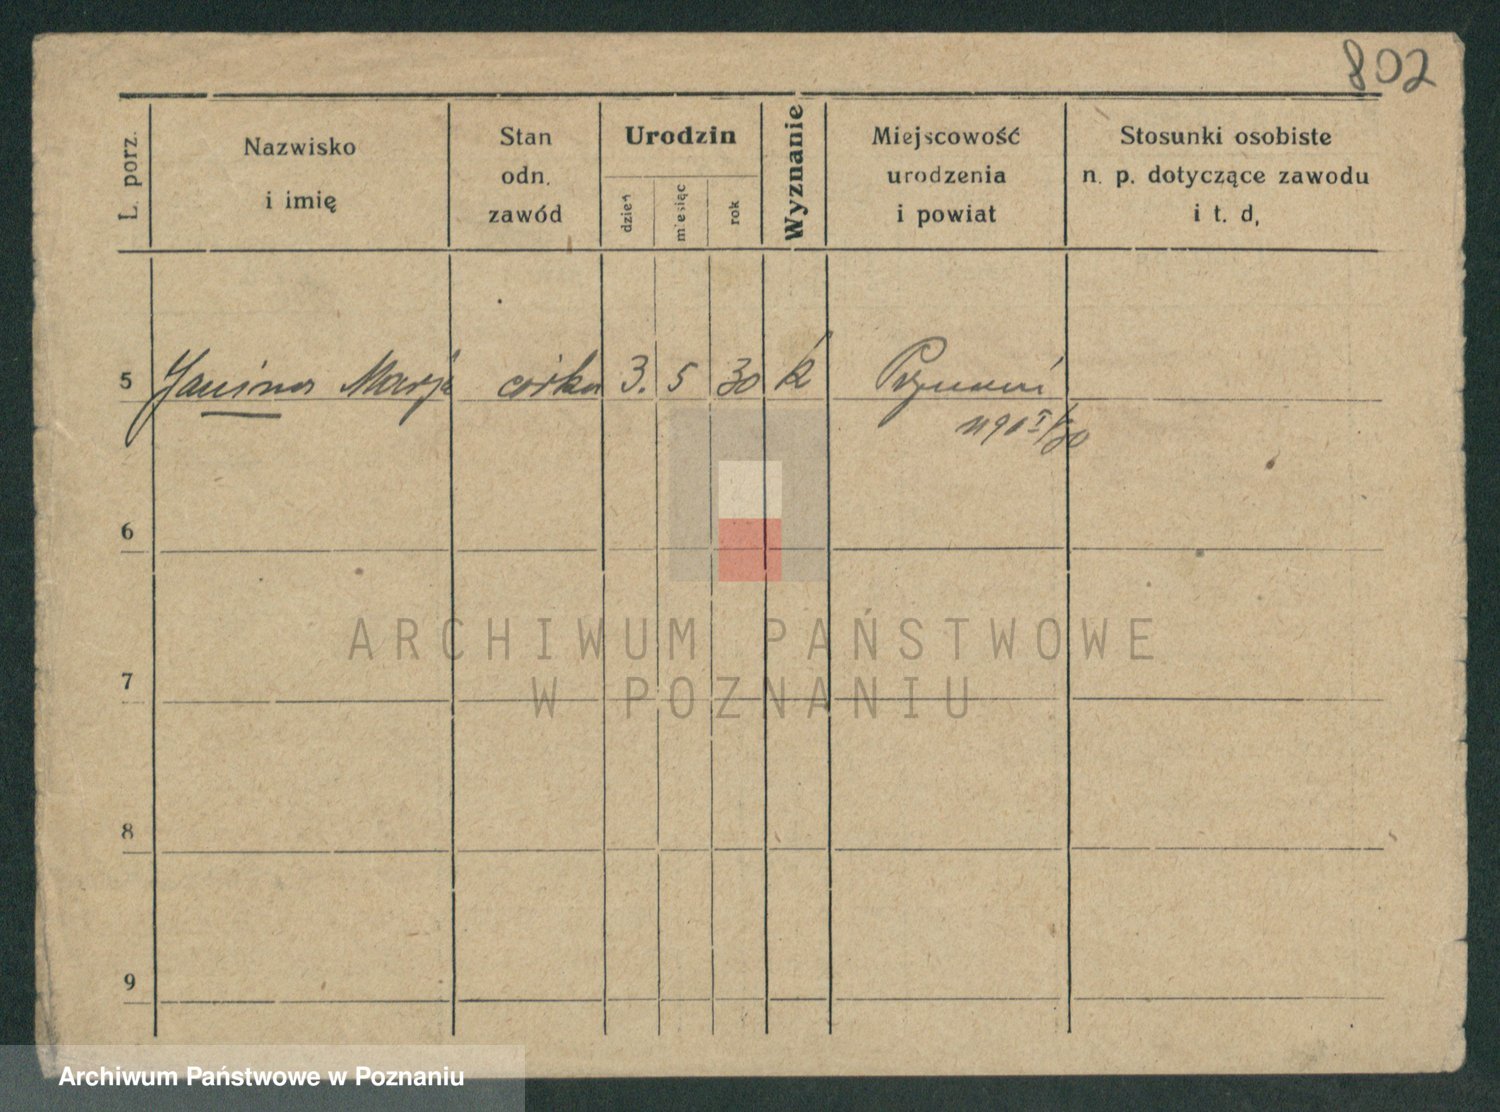 802
L. porz.
Nazwisko
i imię
Stan
odn.
zawód
Urodzin
dzień
miesiąc
rok
Wyznanie
Miejscowość
urodzenia
i powiat
Stosunki osobiste
n. p. dotyczące zawodu
i t. d,
5 Janina Marja córka 3. 5 30 k Poznań
6
7
8
9
ARCHIWUM PAŃSTWOWE
W POZNANIU
Archiwum Państwowe w Poznaniu